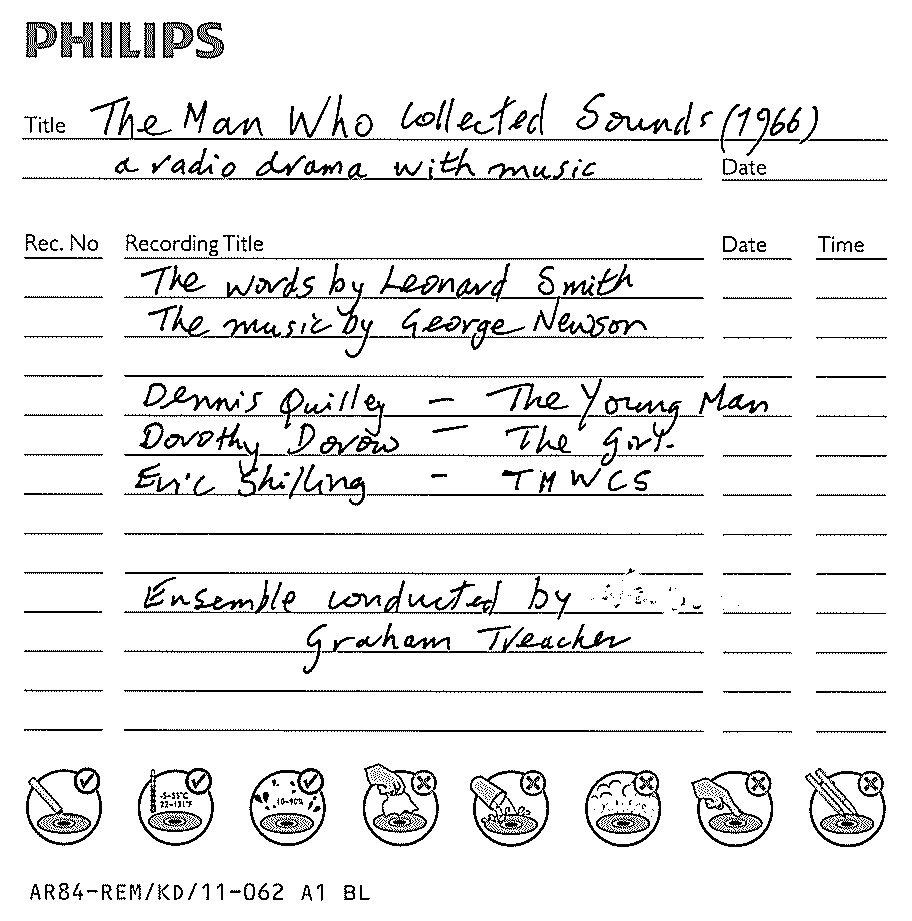 PHILIPS
Title The Man Who Collected Sounds (1966)
a radio drama with music Date
Rec. No Recording Title Date Time
The words by Leonard Smith
The music by George Newson
Dennis Quilley – The Young Man
Dorothy Dorow – The Girl.
Eric Shilling – TMWCS
Ensemble conducted by
Graham Treacher
-5-55°C
22-131°F
10-90%
AR84-REM/KD/11-062 A1 BL